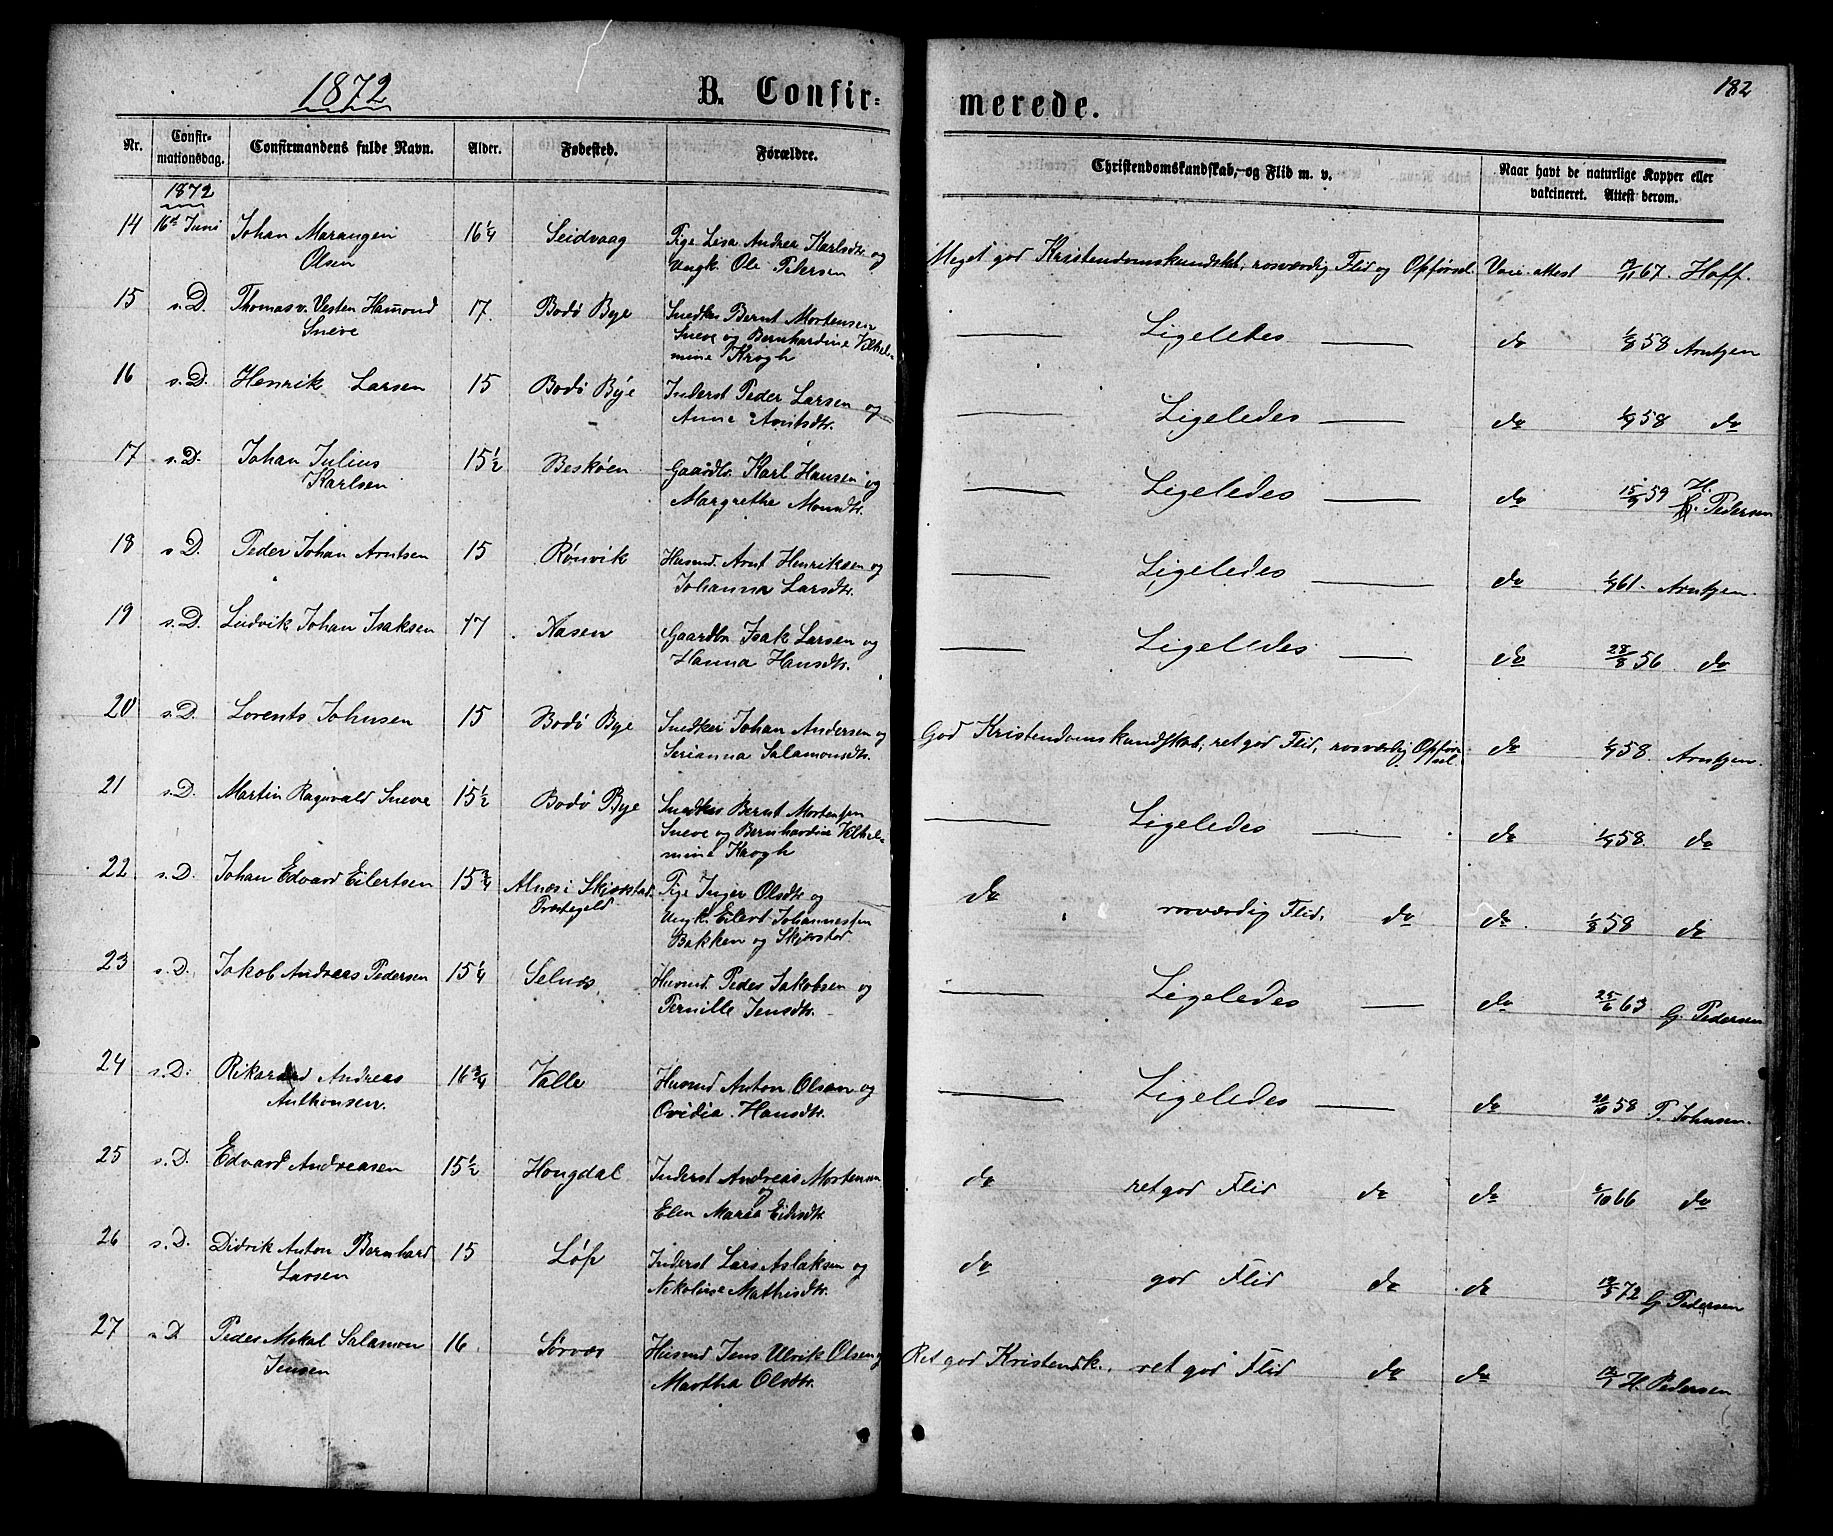 1872 B. Confir- merede. 182
Nr. Confirmationsdag. Confirmandens fulde Navn. Alder. Fødested. Forældre. Christendomskundskab, og Flid m. v. Naar havt de naturlige Kopper eller vakcineret. Attest derom.
1872
14 16de Juni Johan Marangen Seidvaag 16 1/4 Pige Lisa Andrea Karlsdtr og
Olsen Ungk. Ole Petersen
Meget god Kristendomskundskab, rosværdig Flid og Opførsel. Vacc. attest 67. Hoff.
15 s.D. Thomas v. Vesten Hamond 17. Bodø Bye Snedker Bernt Mortensen
Sneve Sneve og Bernhardine Vilhel-
mine Krogh
Ligeledes do 1/8 58 Arntzen
16 s.D. Henrik Larsen 15 Bodø Bye Inderst Peder Larsen og
Anne Arntsdtr.
Ligeledes do 58 do
17 s.D. Johan Julius 15 1/2 Beskøen Gaardbr. Karl Hansen og
Karlsen Margrethe Monsdtr.
Ligeledes do 59 H. Pedersen
18 s.D. Peder Johan Arntsen 15 Rønvik Husmd. Arnt Henriksen og
Johanna Larsdtr.
Ligeledes do 61. Arntzen.
19 s.D. Ludvik Johan Isaksen 17 Nasen Gaardbr Isak Larsen og
Hanna Hansdtr.
Ligeledes do 28/8 56 do
20 s.D. Lorents Johnsen 15 Bodø Bye Snedker Johan Andersen og
Serianna Salamonsdtr.
God Kristendomskundskab, ret god Flid, rosværdig Opfør-
sel. do 58. Arntzen.
21 s.D. Martin Ragnvald Sneve 15 1/2 Bodø Bye Snedker Bernt Mortensen
Sneve og Bernhardine Vilhel-
mine Krogh
Ligeledes do 58. do
22 s.D. Johan Edvard Eilertsen 15 3/4 Alnæs i Skjerstad Pige Inger Olsdtr og
Præstegjeld Ungk. Eilert Johannessen
Bakken og Skjerstad
do rosværdig Flid. do do 1/8 58 do
23 s.D. Jakob Andreas Pedersen 15 1/4 Selnæs Husmd. Peder Jakobsen og
Pernille Jensdtr.
Ligeledes do 25/6 63 G. Pedersen
24 s.D. Rikard Andreas 16 3/4 Valle Husmd Anton Olsen og
Anthonsen. Ovidia Hansdtr.
Ligeledes do 58 P. Johnsen.
25 s.D. Edvard Andreasen 15 1/2 Hougdal Inderst Andreas Mortensen
og
Elen Maria
do ret god Flid do do 66 do
26 s.D. Didrik Anton Bernhard 15 Løp Inderst Lars Aslaksen og
Larsen Nikoline Mathisdtr.
do god Flid do do 72 G. Pedersen
27 s.D. Peder Mekal Salamon 16 Sørvær Husmd Jens Ulrik Olsen og
Jensen Martha Olsdtr.
Ret god Kristendk. ret god Flid do do H. Pedersen